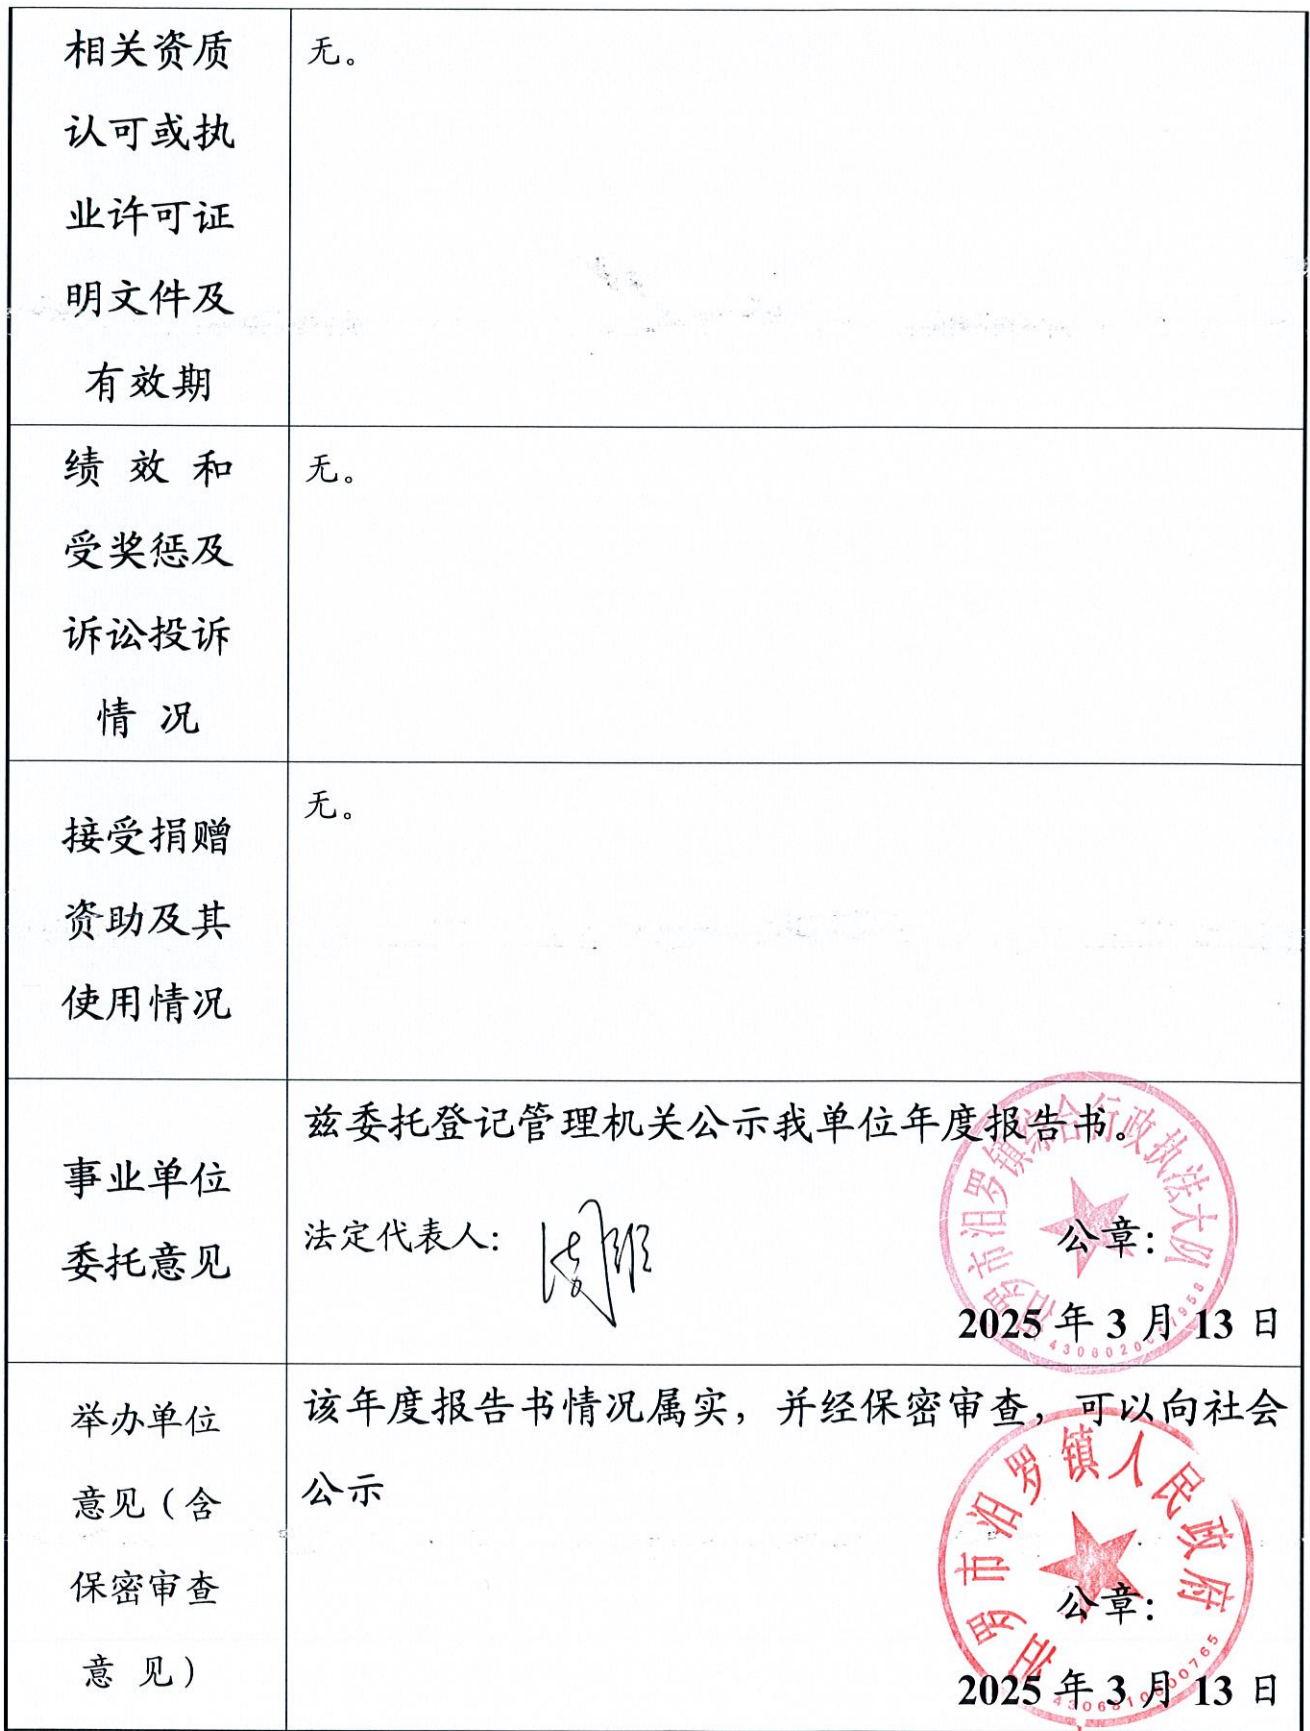 相关资质
认可或执
业许可证
明文件及
有效期
无。
绩 效 和
受奖惩及
诉讼投诉
情 况
无。
接受捐赠
资助及其
使用情况
无。
事业单位
委托意见
兹委托登记管理机关公示我单位年度报告书。
法定代表人：
公章：
2025年3月13日
汨罗市汨罗镇综合行政执法大队
举办单位
意见（含
保密审查
意 见）
该年度报告书情况属实，并经保密审查，可以向社会
公示
公章：
2025年3月13日
汨罗市汨罗镇人民政府
4306810000765